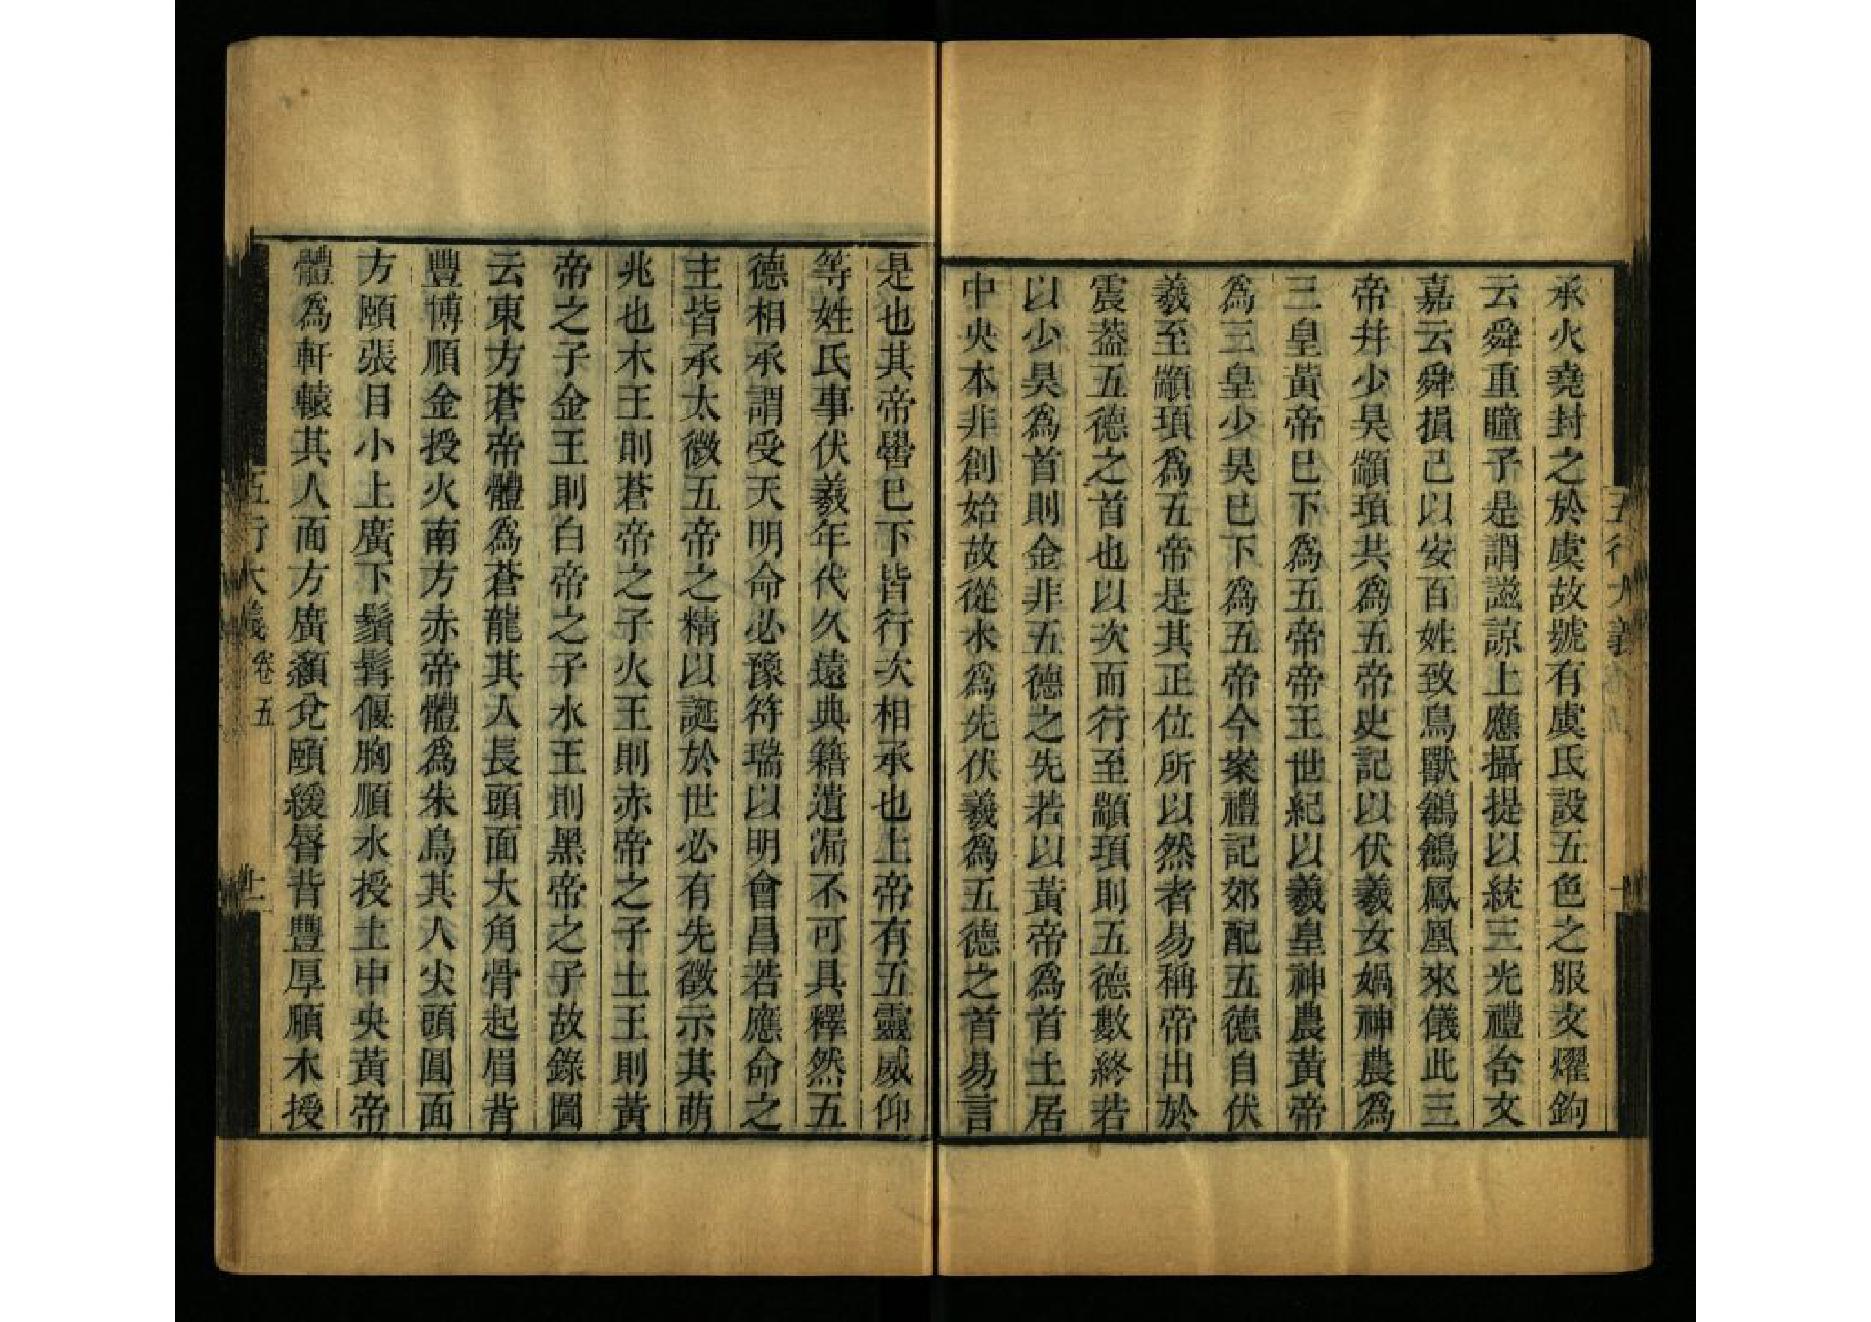 承火堯封之於虞故號有虞氏設五色之服文燿鉤
云舜重瞳子是謂謚諒上應攝提以統三光禮含文
嘉云舜損己以安百姓致鳥獸鶬鶬鳳凰來儀此三
帝幷少昊顓頊共爲五帝史記以伏羲女媧神農爲
三皇黃帝已下爲五帝帝王世紀以羲皇神農黃帝
爲三皇少昊已下爲五帝今案禮記郊配五德自伏
羲至顓頊爲五帝是其正位所以然者易稱帝出於
震蓋五德之首也以次而行至顓頊則五德數終若
以少昊爲首則金非五德之先若以黃帝爲首土居
中央本非創始故從木爲先伏羲爲五德之首易言
是也其帝嚳已下皆行次相承也上帝有五靈威仰
等姓氏事伏羲年代久遠典籍遺漏不可具釋然五
德相承謂受天明命必豫符瑞以明會昌若應命之
主皆承太微五帝之精以誕於世必有先徵示其萌
兆也木王則蒼帝之子火王則赤帝之子土王則黃
帝之子金王則白帝之子水王則黑帝之子故錄圖
云東方蒼帝體爲蒼龍其人長頭面大角骨起眉背
豐博順金授火南方赤帝體爲朱鳥其人尖頭圓面
方頤張目小上廣下鬚髯偃胸順水授土中央黃帝
體爲軒轅其人面方廣顙兌頤緩脣背豐厚順木授
五行大義 卷五
十一